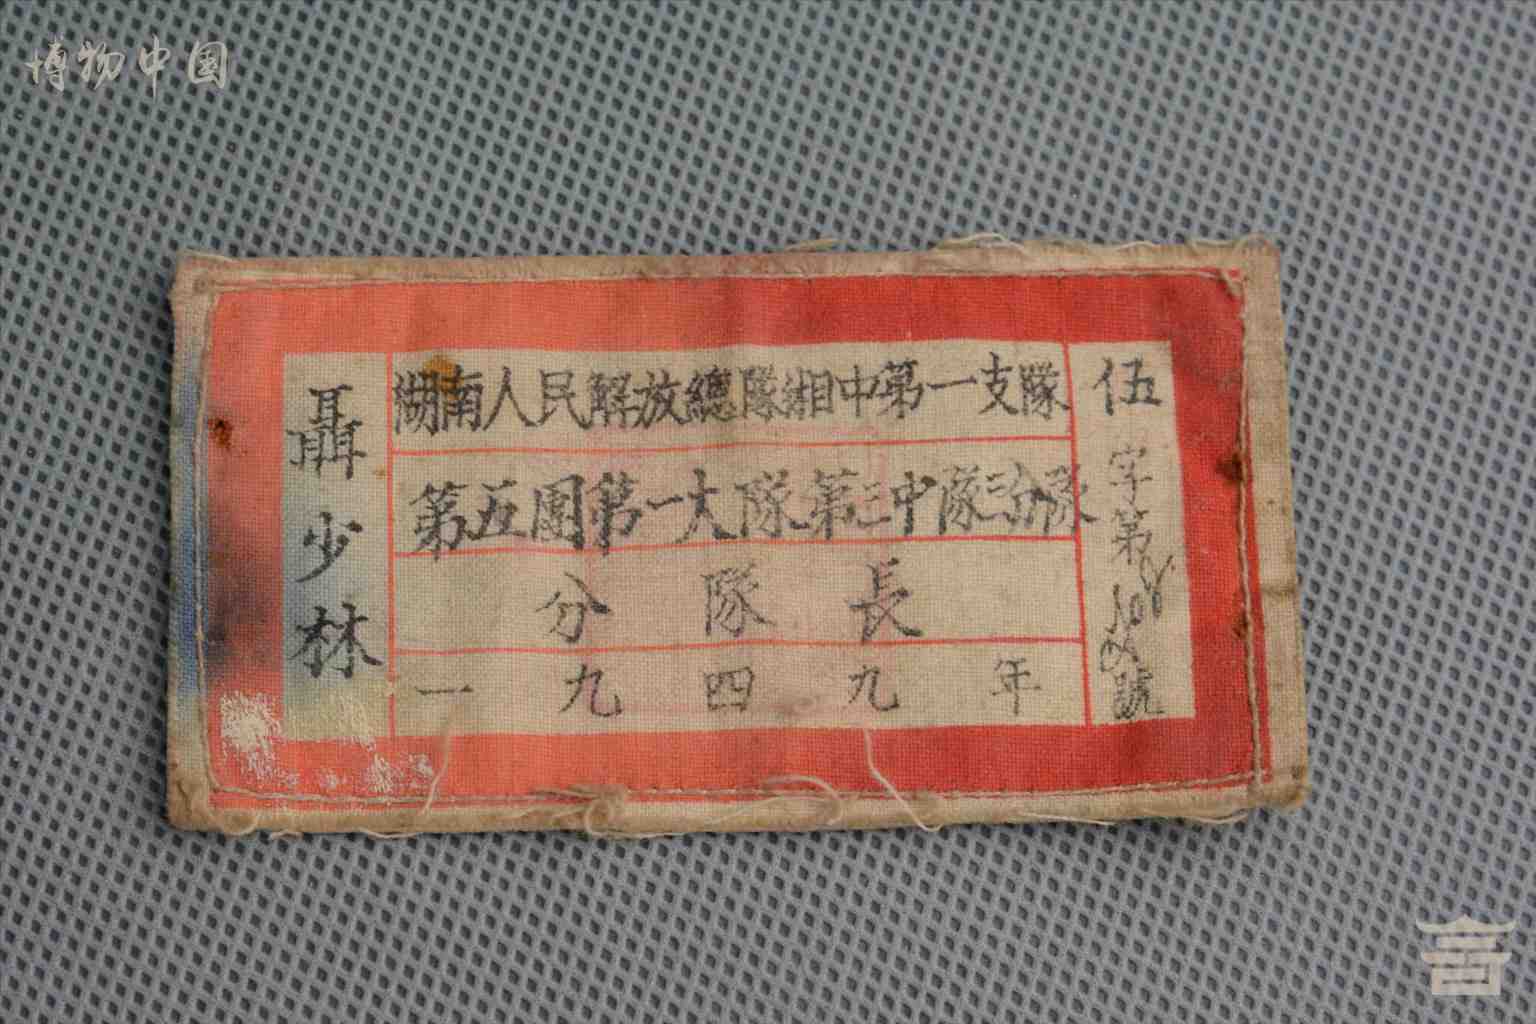 博物中国
湖南人民解放總隊湘中第一支隊
第五團第一大隊第三中隊三分隊
分隊長
一九四九年
聶少林
伍字第108號